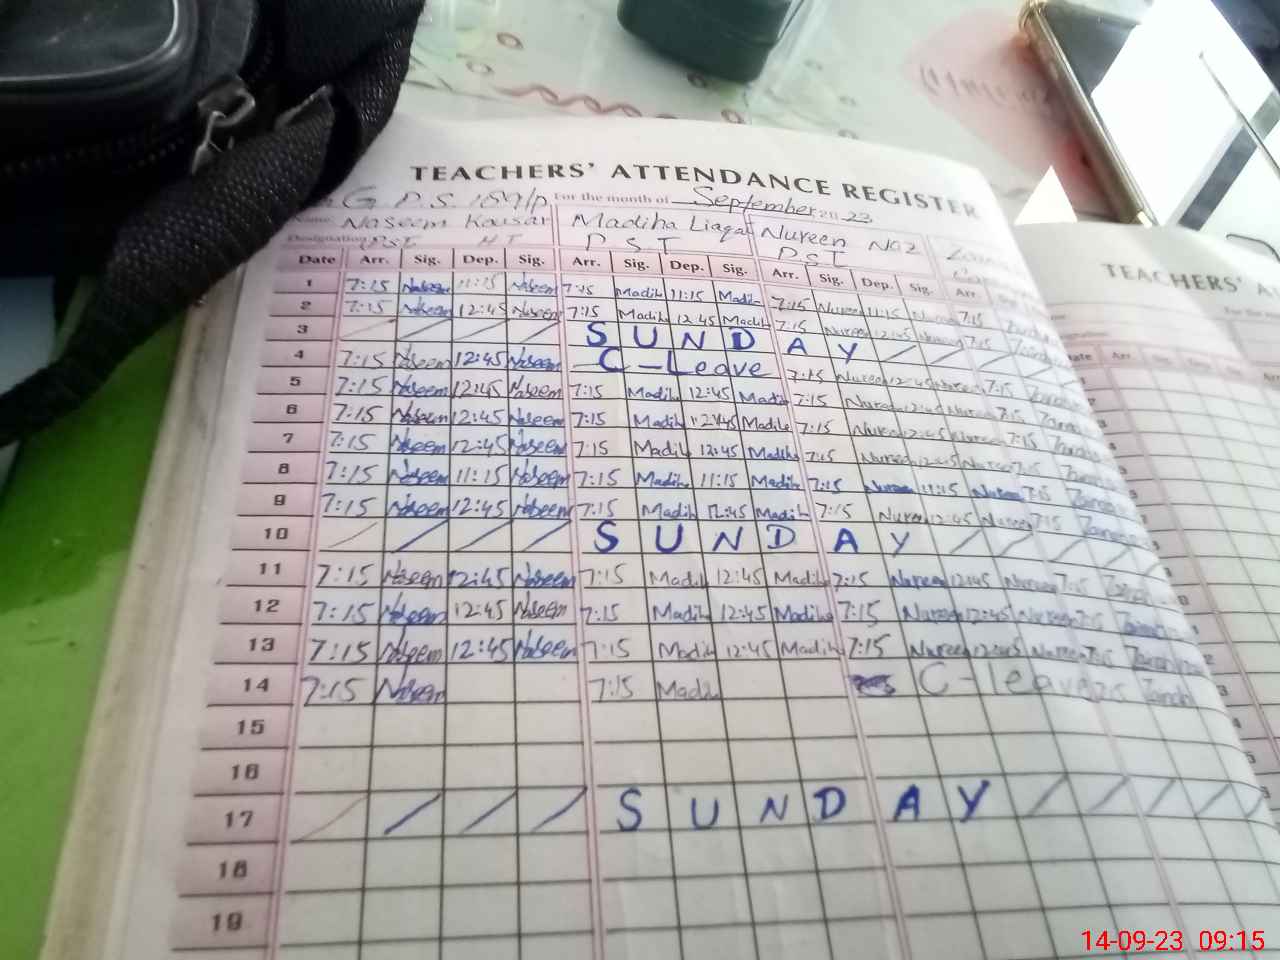 TEACHERS' ATTENDANCE REGISTER
G P.S. For the month of September 20 23
Name Naseem Kausar Madiha Liaqat Nureen Naz
Designation PST HT P S T P S T
Date Arr. Sig. Dep. Sig. Arr. Sig. Dep. Sig. Arr. Sig. Dep. Sig. Arr.
1 7:15 Naseem 11:15 Naseem 7:15 Madiha 11:15 Madiha 7:15 Nureen 11:15 Nureen 7:15
2 7:15 Naseem 12:45 Naseem 7:15 Madiha 12:45 Madiha 7:15 Nureen 12:45 Nureen 7:15
3 S U N D A Y
4 7:15 Naseem 12:45 Naseem C-Leave 7:15 Nureen 12:45 Nureen 7:15
5 7:15 Naseem 12:45 Naseem 7:15 Madiha 12:45 Madiha 7:15 Nureen 12:45 Nureen 7:15
6 7:15 Naseem 12:45 Naseem 7:15 Madiha 12:45 Madiha 7:15 Nureen 12:45 Nureen 7:15
7 7:15 Naseem 12:45 Naseem 7:15 Madiha 12:45 Madiha 7:15 Nureen 12:45 Nureen 7:15
8 7:15 Naseem 11:15 Naseem 7:15 Madiha 11:15 Madiha 7:15 Nureen 11:15 Nureen 7:15
9 7:15 Naseem 12:45 Naseem 7:15 Madiha 12:45 Madiha 7:15 Nureen 12:45 Nureen 7:15
10 S U N D A Y
11 7:15 Naseem 12:45 Naseem 7:15 Madiha 12:45 Madiha 7:15 Nureen 12:45 Nureen 7:15
12 7:15 Naseem 12:45 Naseem 7:15 Madiha 12:45 Madiha 7:15 Nureen 12:45 Nureen 7:15
13 7:15 Naseem 12:45 Naseem 7:15 Madiha 12:45 Madiha 7:15 Nureen 12:45 Nureen 7:15
14 7:15 Naseem 7:15 Madiha C-leave 7:15
15
16
17 S U N D A Y
18
19
TEACHERS'
14-09-23 09:15